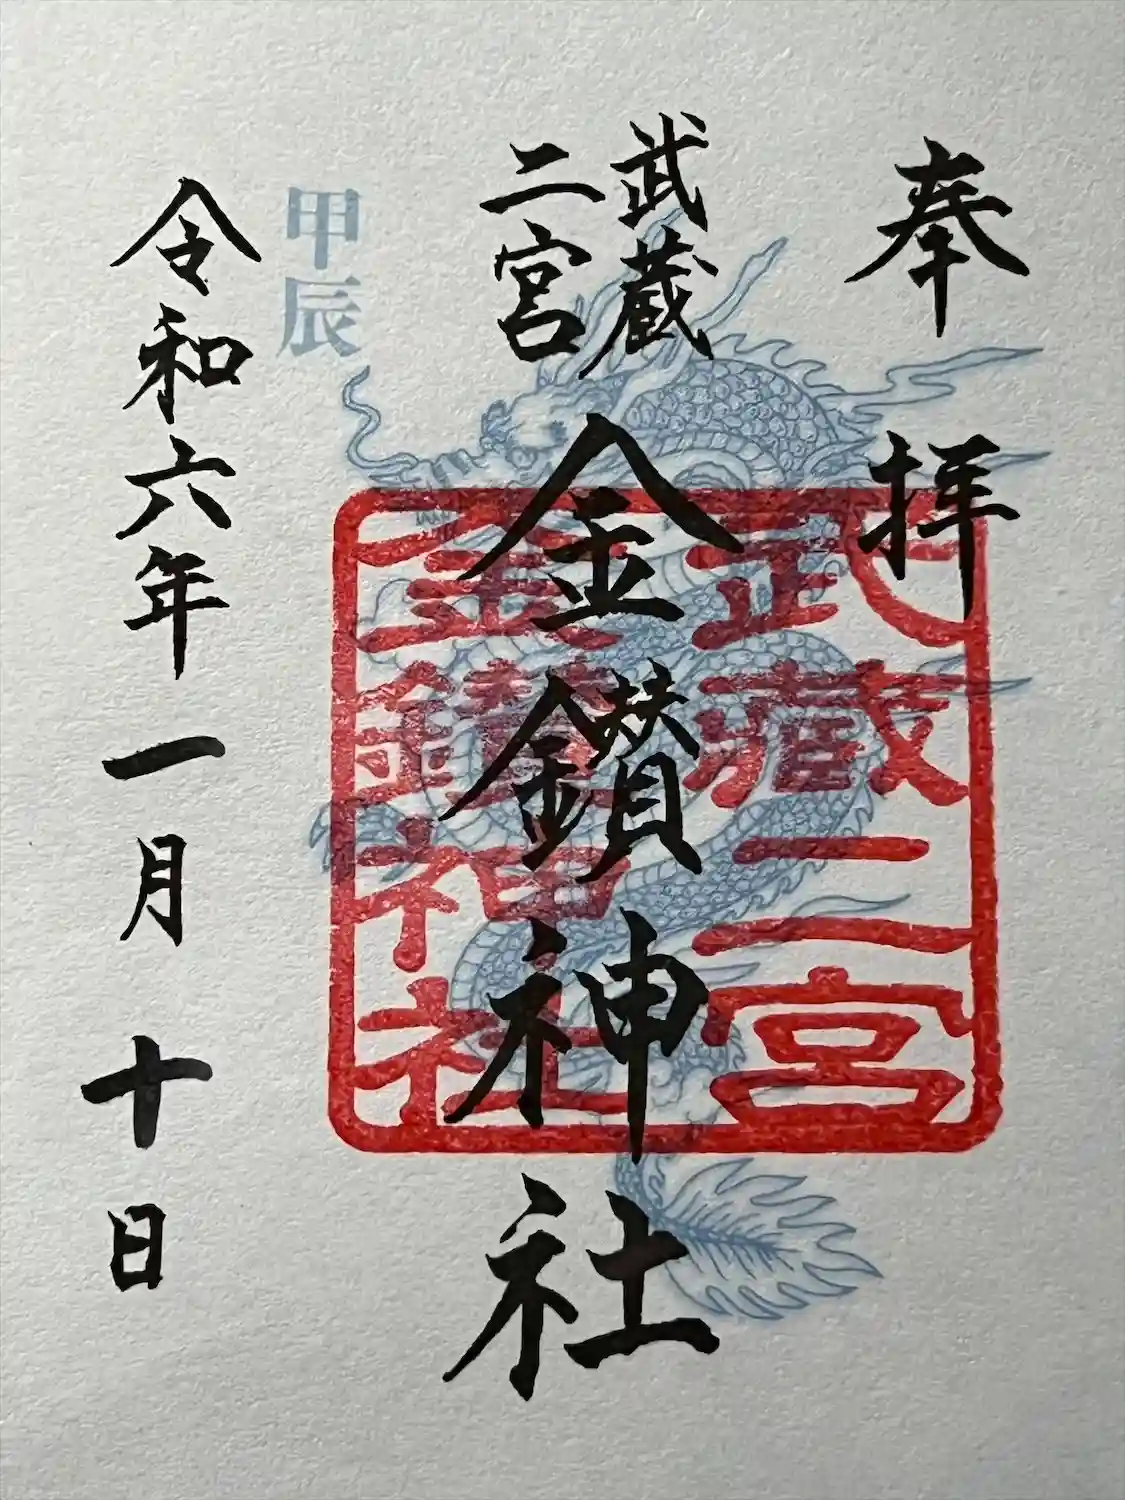 奉拝
武蔵
二宮
金鑚神社
甲辰
令和六年一月十日
武蔵二宮
金鑚神社